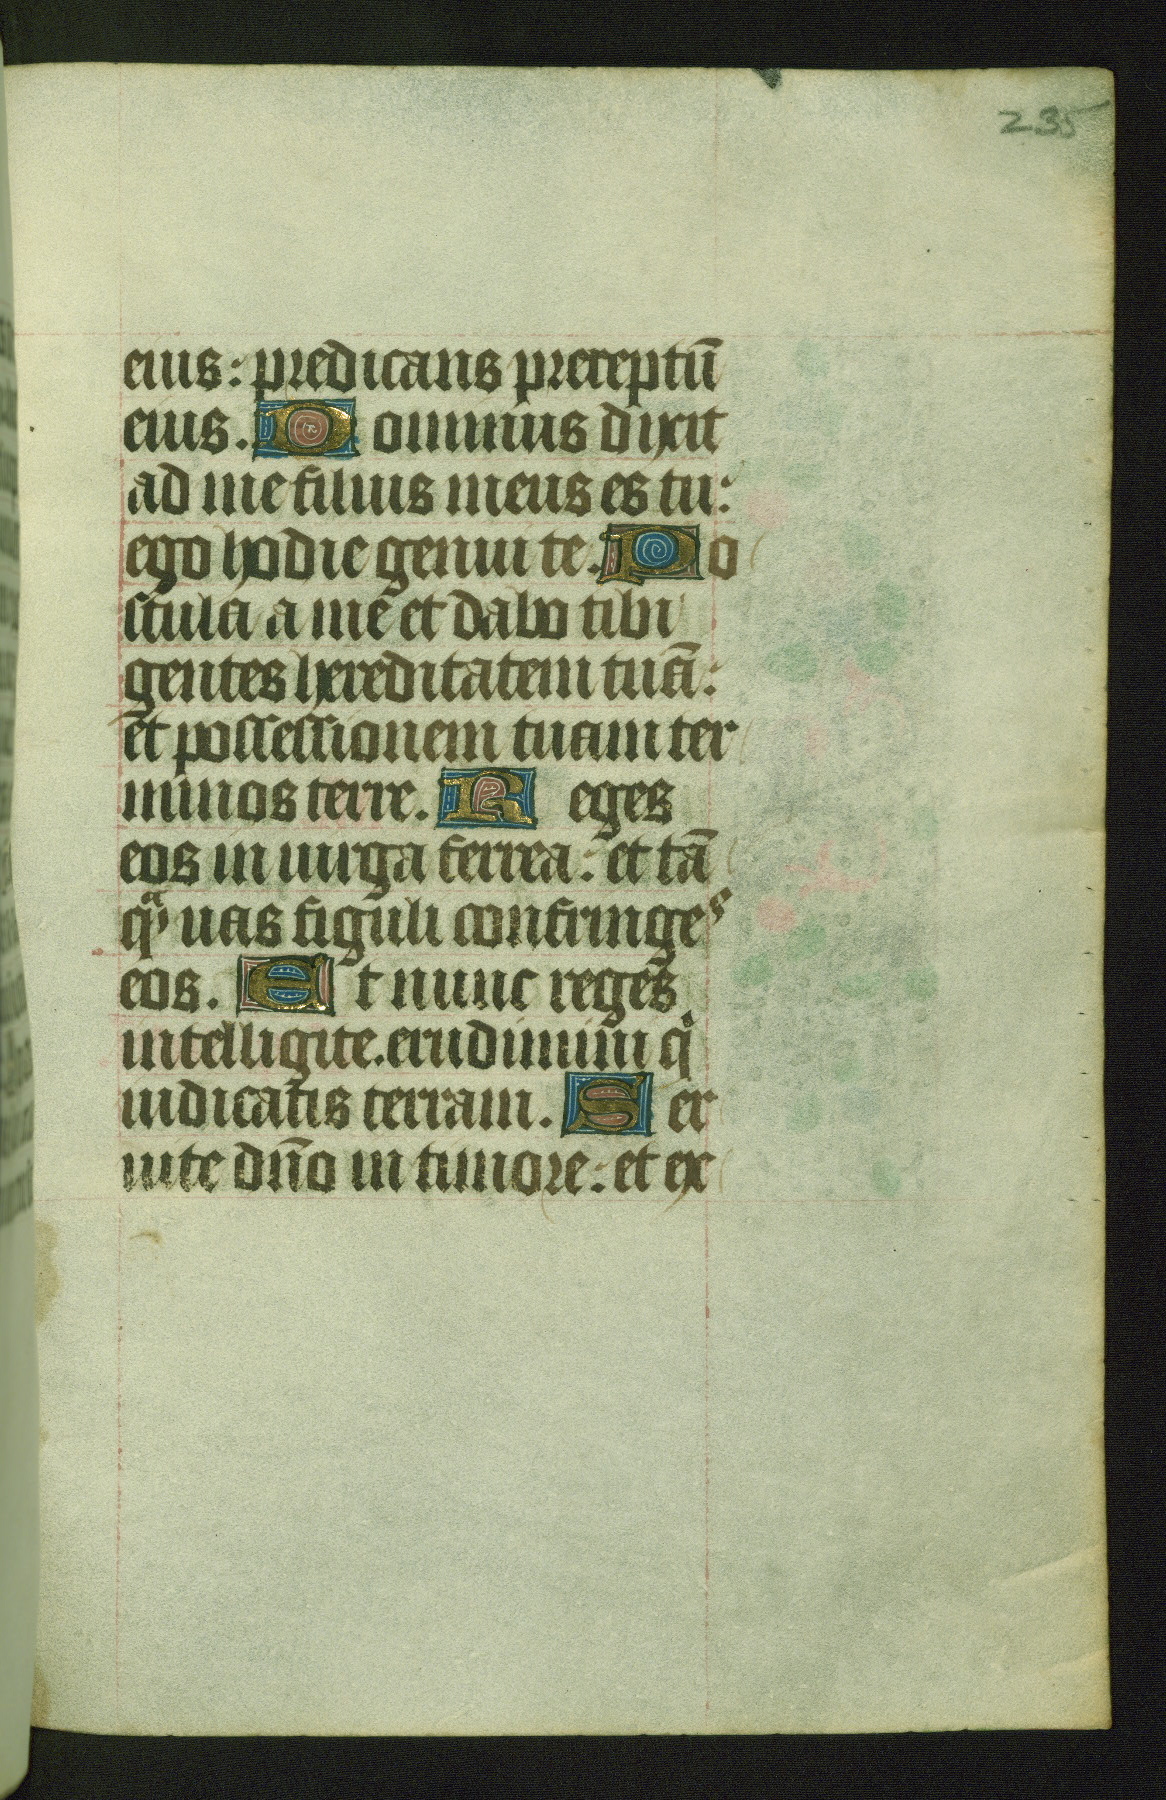 235
eius: predicans preceptū
eius. Dominus dixit
ad me filius meus es tu:
ego hodie genui te. Po
stula a me et dabo tibi
gentes hereditatem tuā:
et possessionem tuam ter
minos terre. Reges
eos in uirga ferrea: et tā
qᵃ uas figuli confringes
eos. Et nunc reges
intelligite. erudimini qⁱ
iudicatis terram. Ser
uite dn̄o in timore: et ex